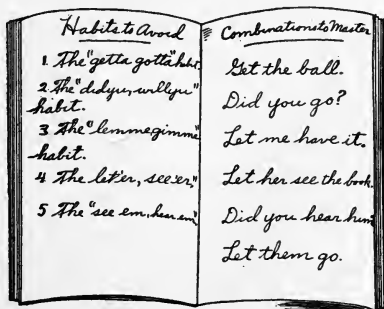 Habits to Avoid
1. The "getta gotta" habit.
2. The "didyu, willyu"
habit.
3 The "lemme gimme"
habit.
4 The let'er, see'er,"
5 The "see em, hear em"
Combinations to Master
Get the ball.
Did you go?
Let me have it.
Let her see the book.
Did you hear him
Let them go.